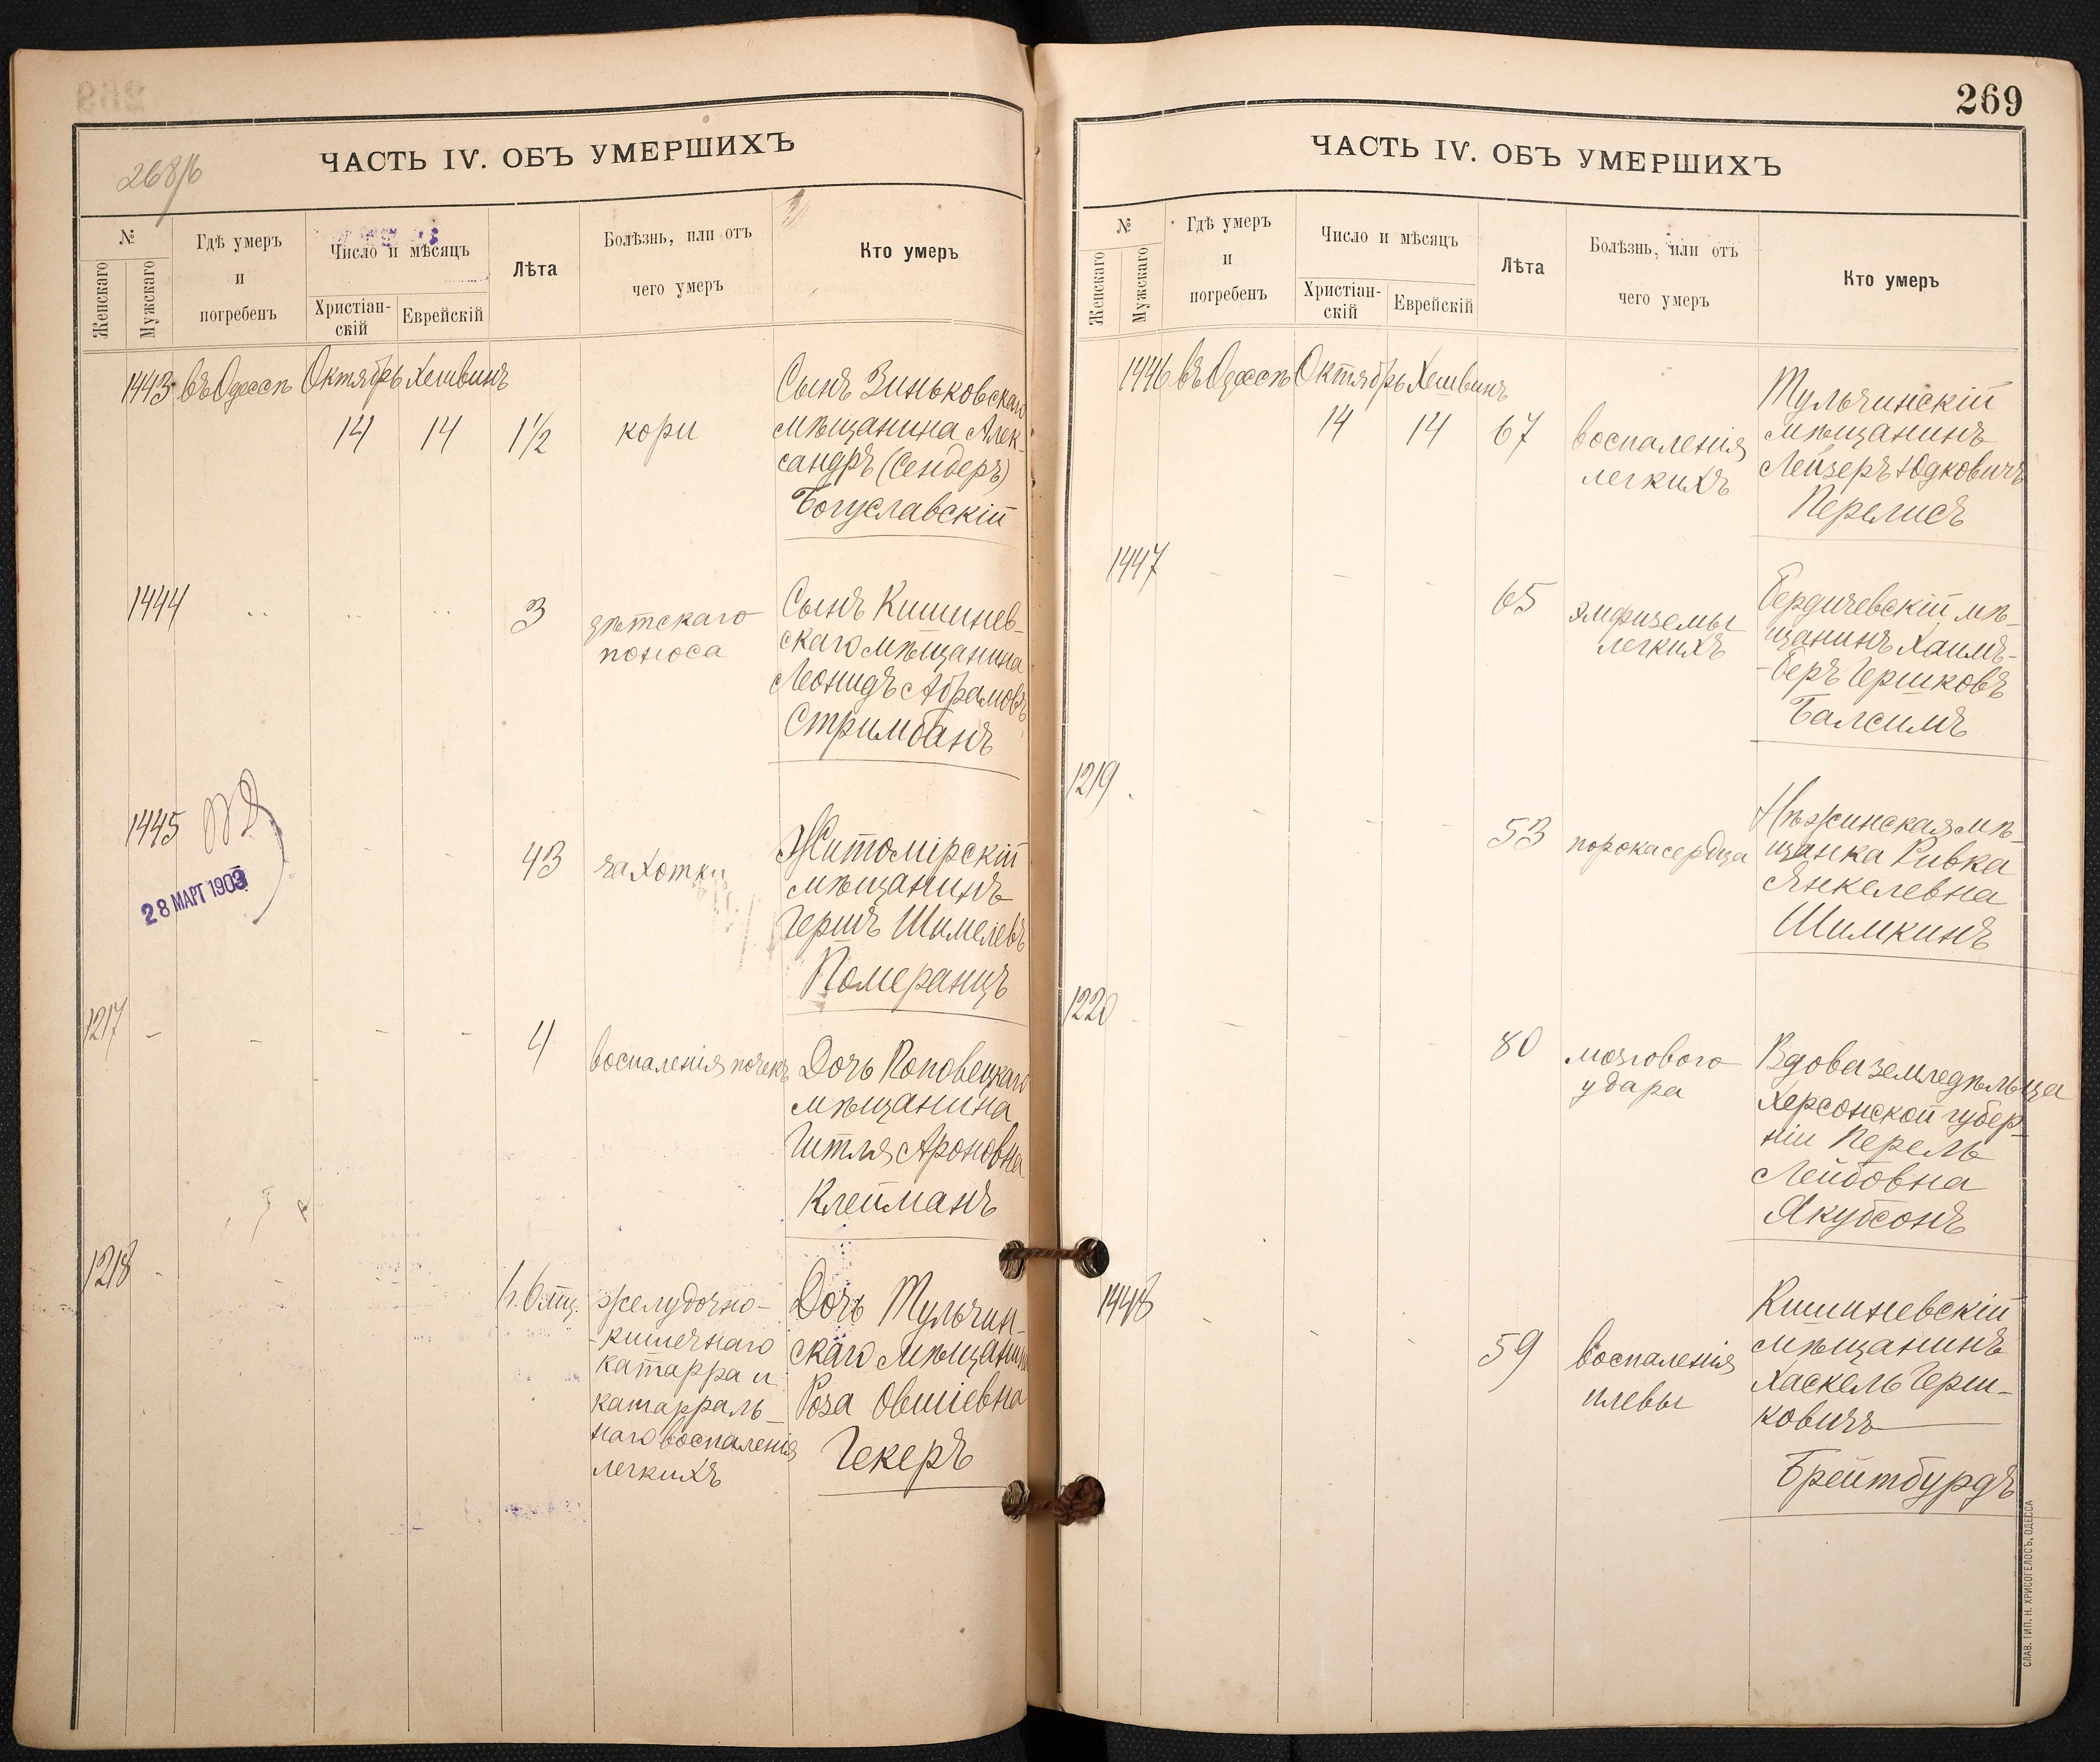 268/б
ЧАСТЬ IV. ОБЪ УМЕРШИХЪ
№
Женскаго
Мужскаго
Гдѣ умеръ
и
погребенъ
Число и мѣсяцъ
Христіан-
скій
Еврейскій
Лѣта
Болѣзнь, или отъ
чего умеръ
Кто умеръ
1443 въ Одессѣ Октябрь Хешвинъ
14 14 1½ кори
Сынъ Зиньковскаго
мѣщанина Алек-
сандръ (Сендеръ)
Богуславскій
1444
3 дѣтскаго
поноса
Сынъ Кишинев-
скаго мѣщанина
Леонидъ Абрамовъ
Стримбанъ
1445
28 МАРТ 1903
43 чахотки
Житомірскій
мѣщанинъ
Гершъ Шимелевъ
Померанцъ
1217 -
4 воспаленія почекъ
Дочь Поповецкаго
мѣщанина
Гитля Ароновна
Клейманъ
1218
1 г. 6 мц. желудочно-
-кишечнаго
катарра и
катарраль-
наго воспаленія
легкихъ
Дочь Тульчин-
скаго мѣщанина
Роза Овшіевна
Гекеръ
269
ЧАСТЬ IV. ОБЪ УМЕРШИХЪ
№
Женскаго
Мужскаго
Гдѣ умеръ
и
погребенъ
Число и мѣсяцъ
Христіан-
скій
Еврейскій
Лѣта
Болѣзнь, или отъ
чего умеръ
Кто умеръ
1446 въ Одессѣ Октябрь Хешвинъ
14 14 67 воспаленія
легкихъ
Тульчинскій
мѣщанинъ
Лейзеръ Юдковичъ
Перелисъ
1447
65 эмфиземы
легкихъ
Бердичевскій мѣ-
щанинъ Хаимъ-
-Беръ Гершковъ
Балсимъ
1219
53 порока сердца
Нѣжинская мѣ-
щанка Ривка
Янкелевна
Шимкинъ
1220
80 мозгового
удара
Вдова земледѣльца
Херсонской губер-
ніи Перель
Лейбовна
Якубсонъ
1448
59 воспаленія
плевы
Кишиневскій
мѣщанинъ
Хаскель Герш-
ковичъ
Брейтбурдъ
СЛАВ. ТИП. Н. ХРИСОГЕЛОСЪ, ОДЕССА